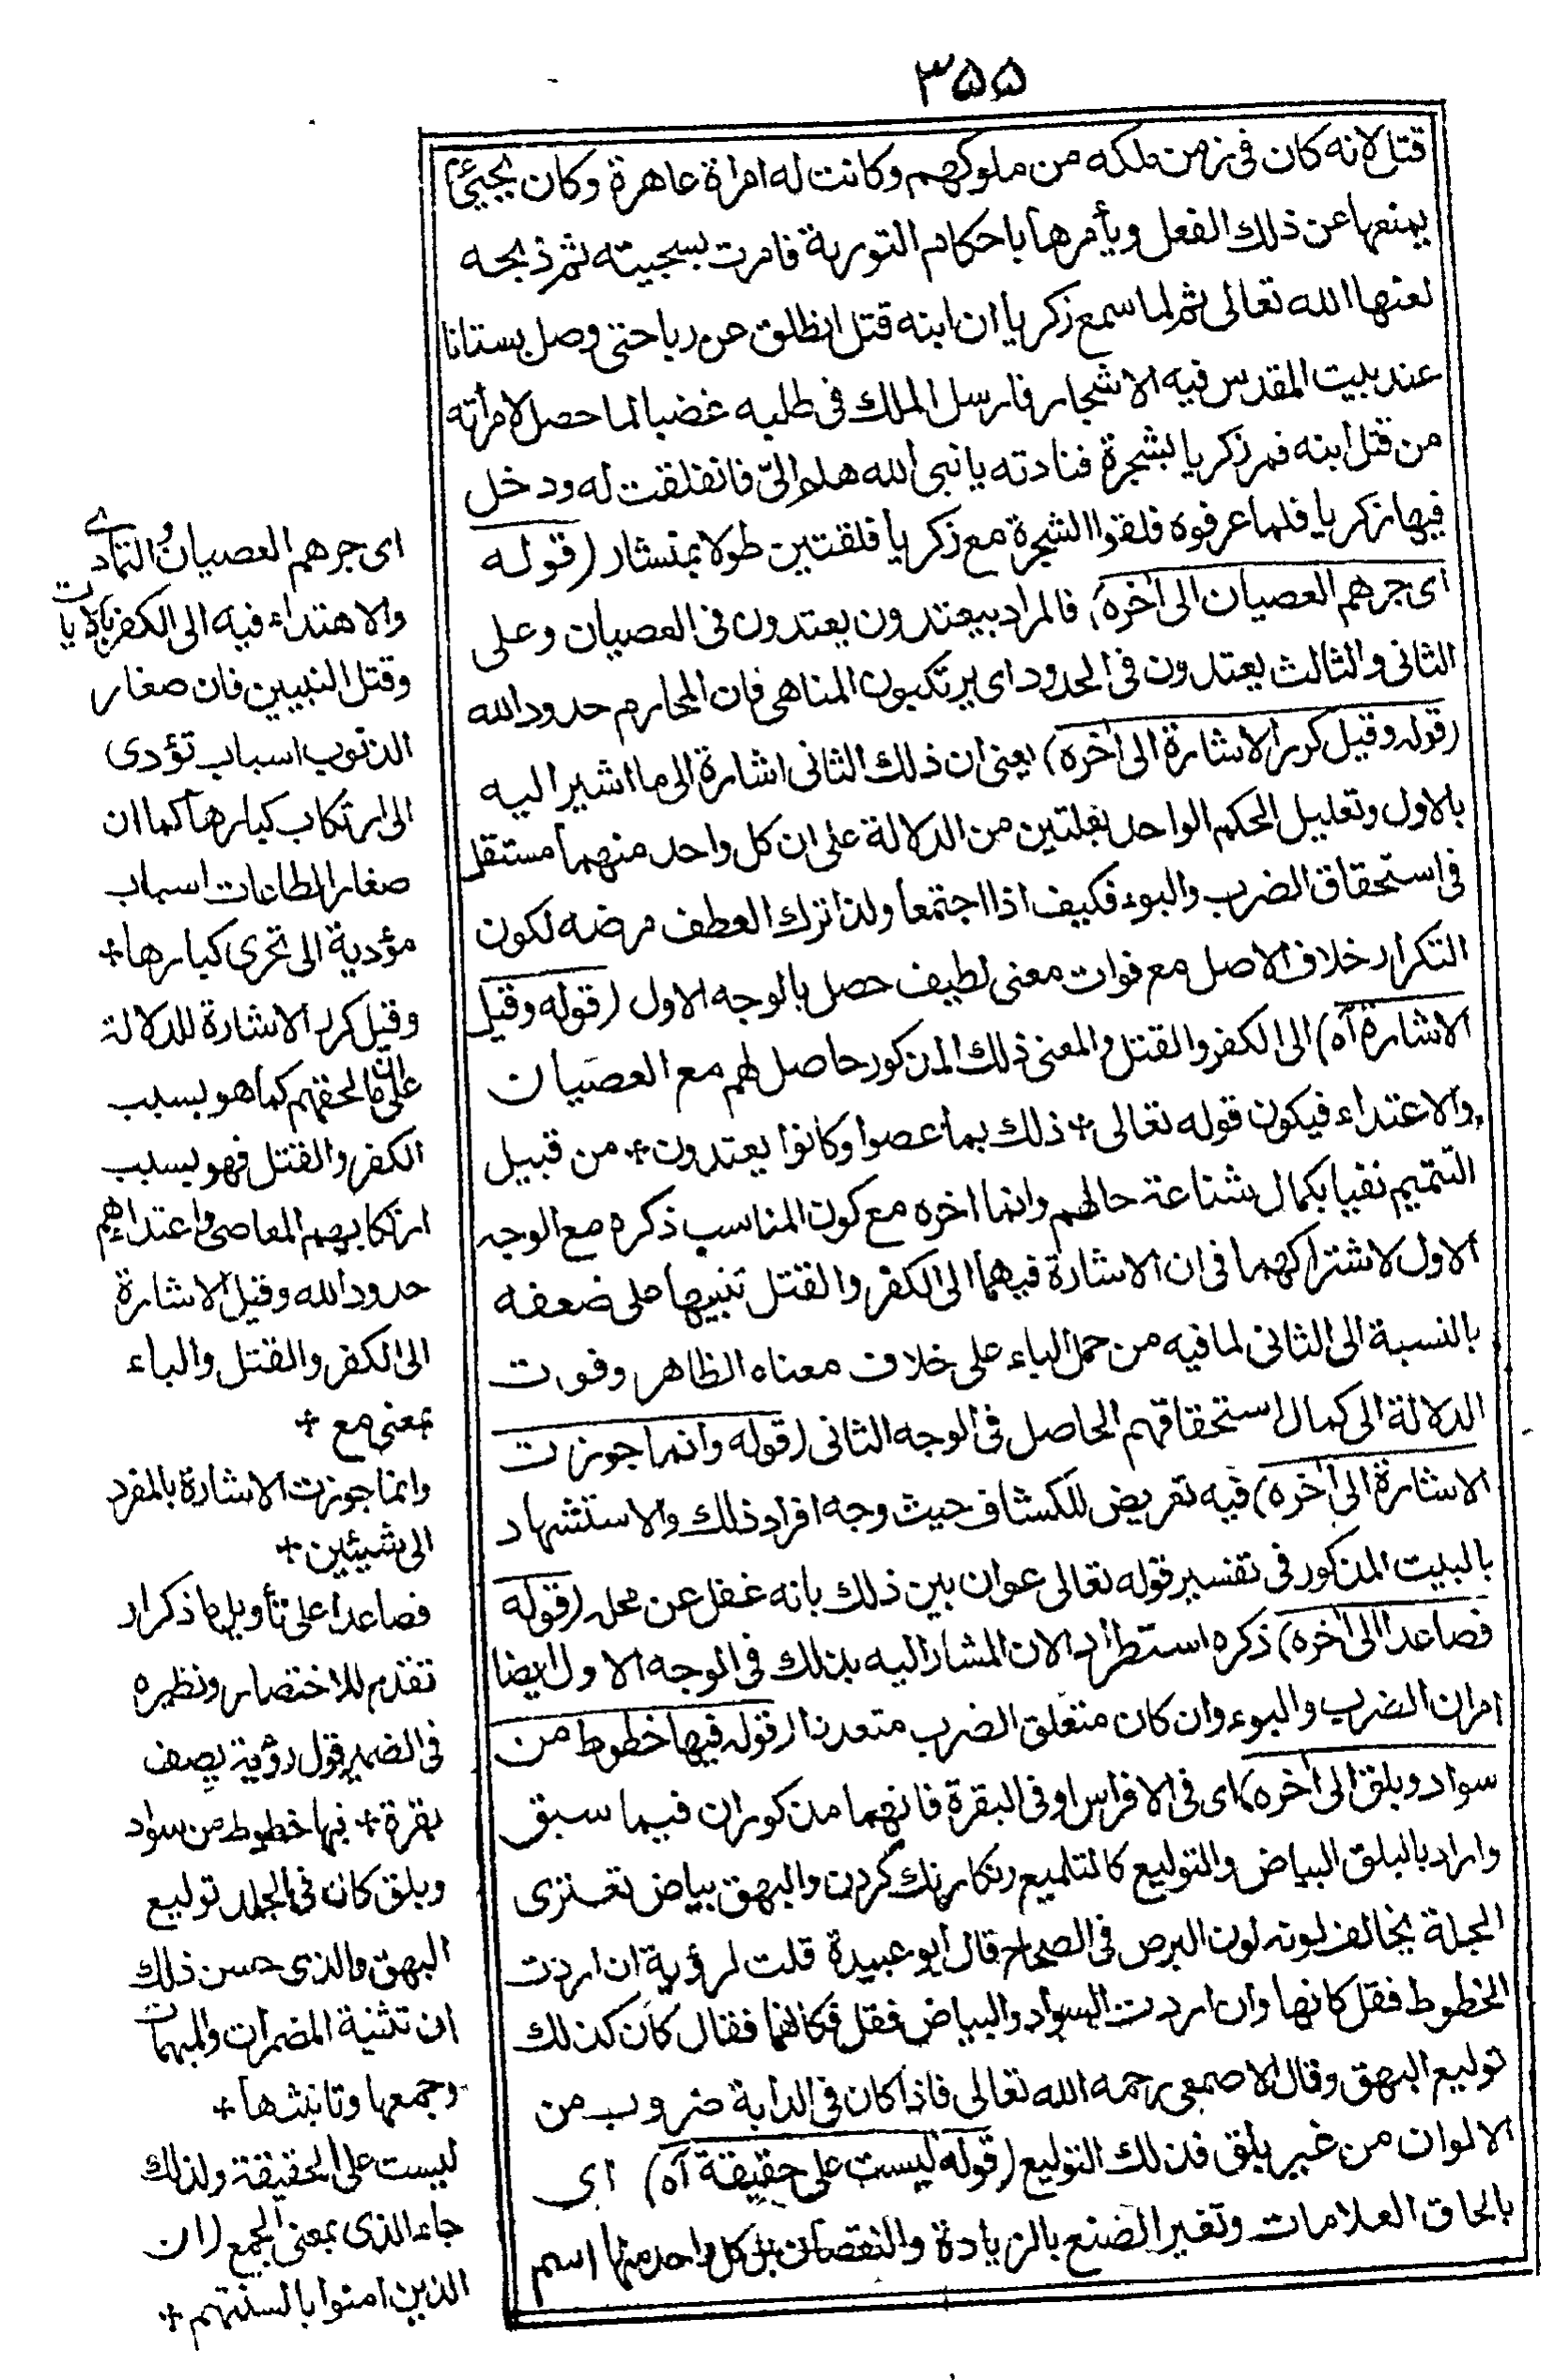 ٣٥٥
قتل لانه كان فى زمن ملكه من ملوكهم وكانت له امراة عاهرة وكان يحيئ
يمنعها عن ذلك الفعل ويأمرها باحكام التورية فامرت بسجيته ثم ذبحه
لعنها الله تعالى ثم لما سمع زكريا ان ابنه قتل انطلق حتى وصل بستانا
عند بيت المقدس فيه الاشجار فارسل الملك فى طلبه غضبا لما حصل لامرأته
من قتل ابنه فمر زكريا بشجرة فنادته يا نبى الله هلم الىّ فانفلقت له ودخل
فيها زكريا فلما عرفوه فلقوا الشجرة مع زكريا فلقتين طولا بمنشار (قوله
اى جرهم العصيان الى اخره) فالمراد بيعتدون يعتدون فى العصيان وعلى
الثانى والثالث يعتدون فى الحدود اى يرتكبون المناهى فان المحارم حدود الله
(قوله وقيل كرر الاشارة الى اخره) يعنى ان ذلك الثانى اشارة الى ما اشير اليه
بالاول وتعليل الحكم الواحد بعلتين من الدلالة على ان كل واحد منهما مستقل
فى استحقاق الضرب والبوء فكيف اذا اجتمعا ولذا ترك العطف مرضه لكون
التكرار خلاف الاصل مع فوات معنى لطيف حصل بالوجه الاول (قوله وقيل
الاشارة آه) الى الكفر والقتل والمعنى ذلك المذكور حاصل لهم مع العصيان
والاعتداء فيكون قوله تعالى + ذلك بما عصوا وكانوا يعتدون + من قبيل
التتميم نفيا بكمال شناعة حالهم وانما اخره مع كون المناسب ذكره مع الوجه
الاول لاشتراكهما فى ان الاشارة فيهما الى الكفر والقتل تنبيها على ضعفه
بالنسبة الى الثانى لما فيه من حمل الباء على خلاف معناه الظاهر وفوت
الدلالة الى كمال استحقاقهم الحاصل فى الوجه الثانى (قوله وانما جوزت
الاشارة الى اخره) فيه تعريض للكشاف حيث وجه افراد ذلك والاستشهاد
بالبيت المذكور فى تفسير قوله تعالى عوان بين ذلك بانه غفل عن محله (قوله
فصاعدا الى اخره) ذكره استطراد لان المشار اليه بذلك فى الوجه الاول ايضا
امران الضرب والبوء وان كان متعلق الضرب متعددا (قوله فيها خطوط من
سواد وبلق الى اخره) اى فى الافراس او فى البقرة فانهما مذكوران فيما سبق
واراد بالبلق البياض والتوليع كالتلميع رنكارنك كردن والبهق بياض تعتزى
الجلدة يخالف لونه لون البرص فى الصحاح قال ابو عبيدة قلت لرؤبة ان اردت
الخطوط فقل كانها وان اردت السواد والبياض فقل فكانهما فقال كان كذلك
توليع البهق وقال الاصمعى رحمه الله تعالى فاذا كان فى الدابة ضروب من
الالوان من غير بلق فذلك التوليع (قوله ليست على حقيقة آه) اى
بالحاق العلامات وتغير الصنع بالزيادة والنقصان بل كل واحد منها اسم
اى جرهم العصيان والتمادى
والاهتداء فيه الى الكفر بالايات
وقتل النبيين فان صغار
الذنوب اسباب تؤدى
الى ارتكاب كبارها كما ان
صغار الطاعات اسباب
مؤدية الى تحرى كبارها +
وقيل كرر الاشارة للدلالة
على ان ما لحقهم كما هو بسبب
الكفر والقتل فهو بسبب
ارتكابهم المعاصى واعتداءهم
حدود الله وقيل الاشارة
الى الكفر والقتل والباء
بمعنى مع +
وانما جوزت الاشارة بالمفرد
الى شيئين +
فصاعدا على تأويل ما ذكر او
تقدم للاختصار ونظيره
فى الضمير قول رؤبة يصف
بقرة + فيها خطوط من سواد
وبلق كان فى الجلد توليع
البهق والذى حسن ذلك
ان تثنية المضمرات والمبهمات
وجمعها وتانيثها +
ليست على الحقيقة ولذلك
جاء الذى بمعنى الجمع (ان
الذين امنوا بالسنتهم +